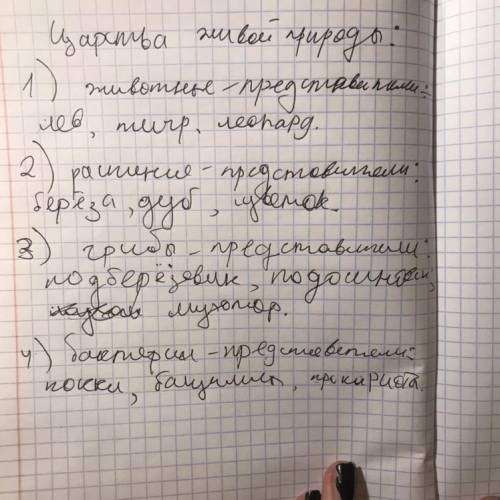 Царства живой природы:
1) животные – представители:
лев, тигр, леопард.
2) растения – представители:
берёза, дуб, цветок
3) грибы – представители:
подберёзовик, подосиновик,
мухомор.
4) бактерии – представители:
кокки, бациллы, прокариота.